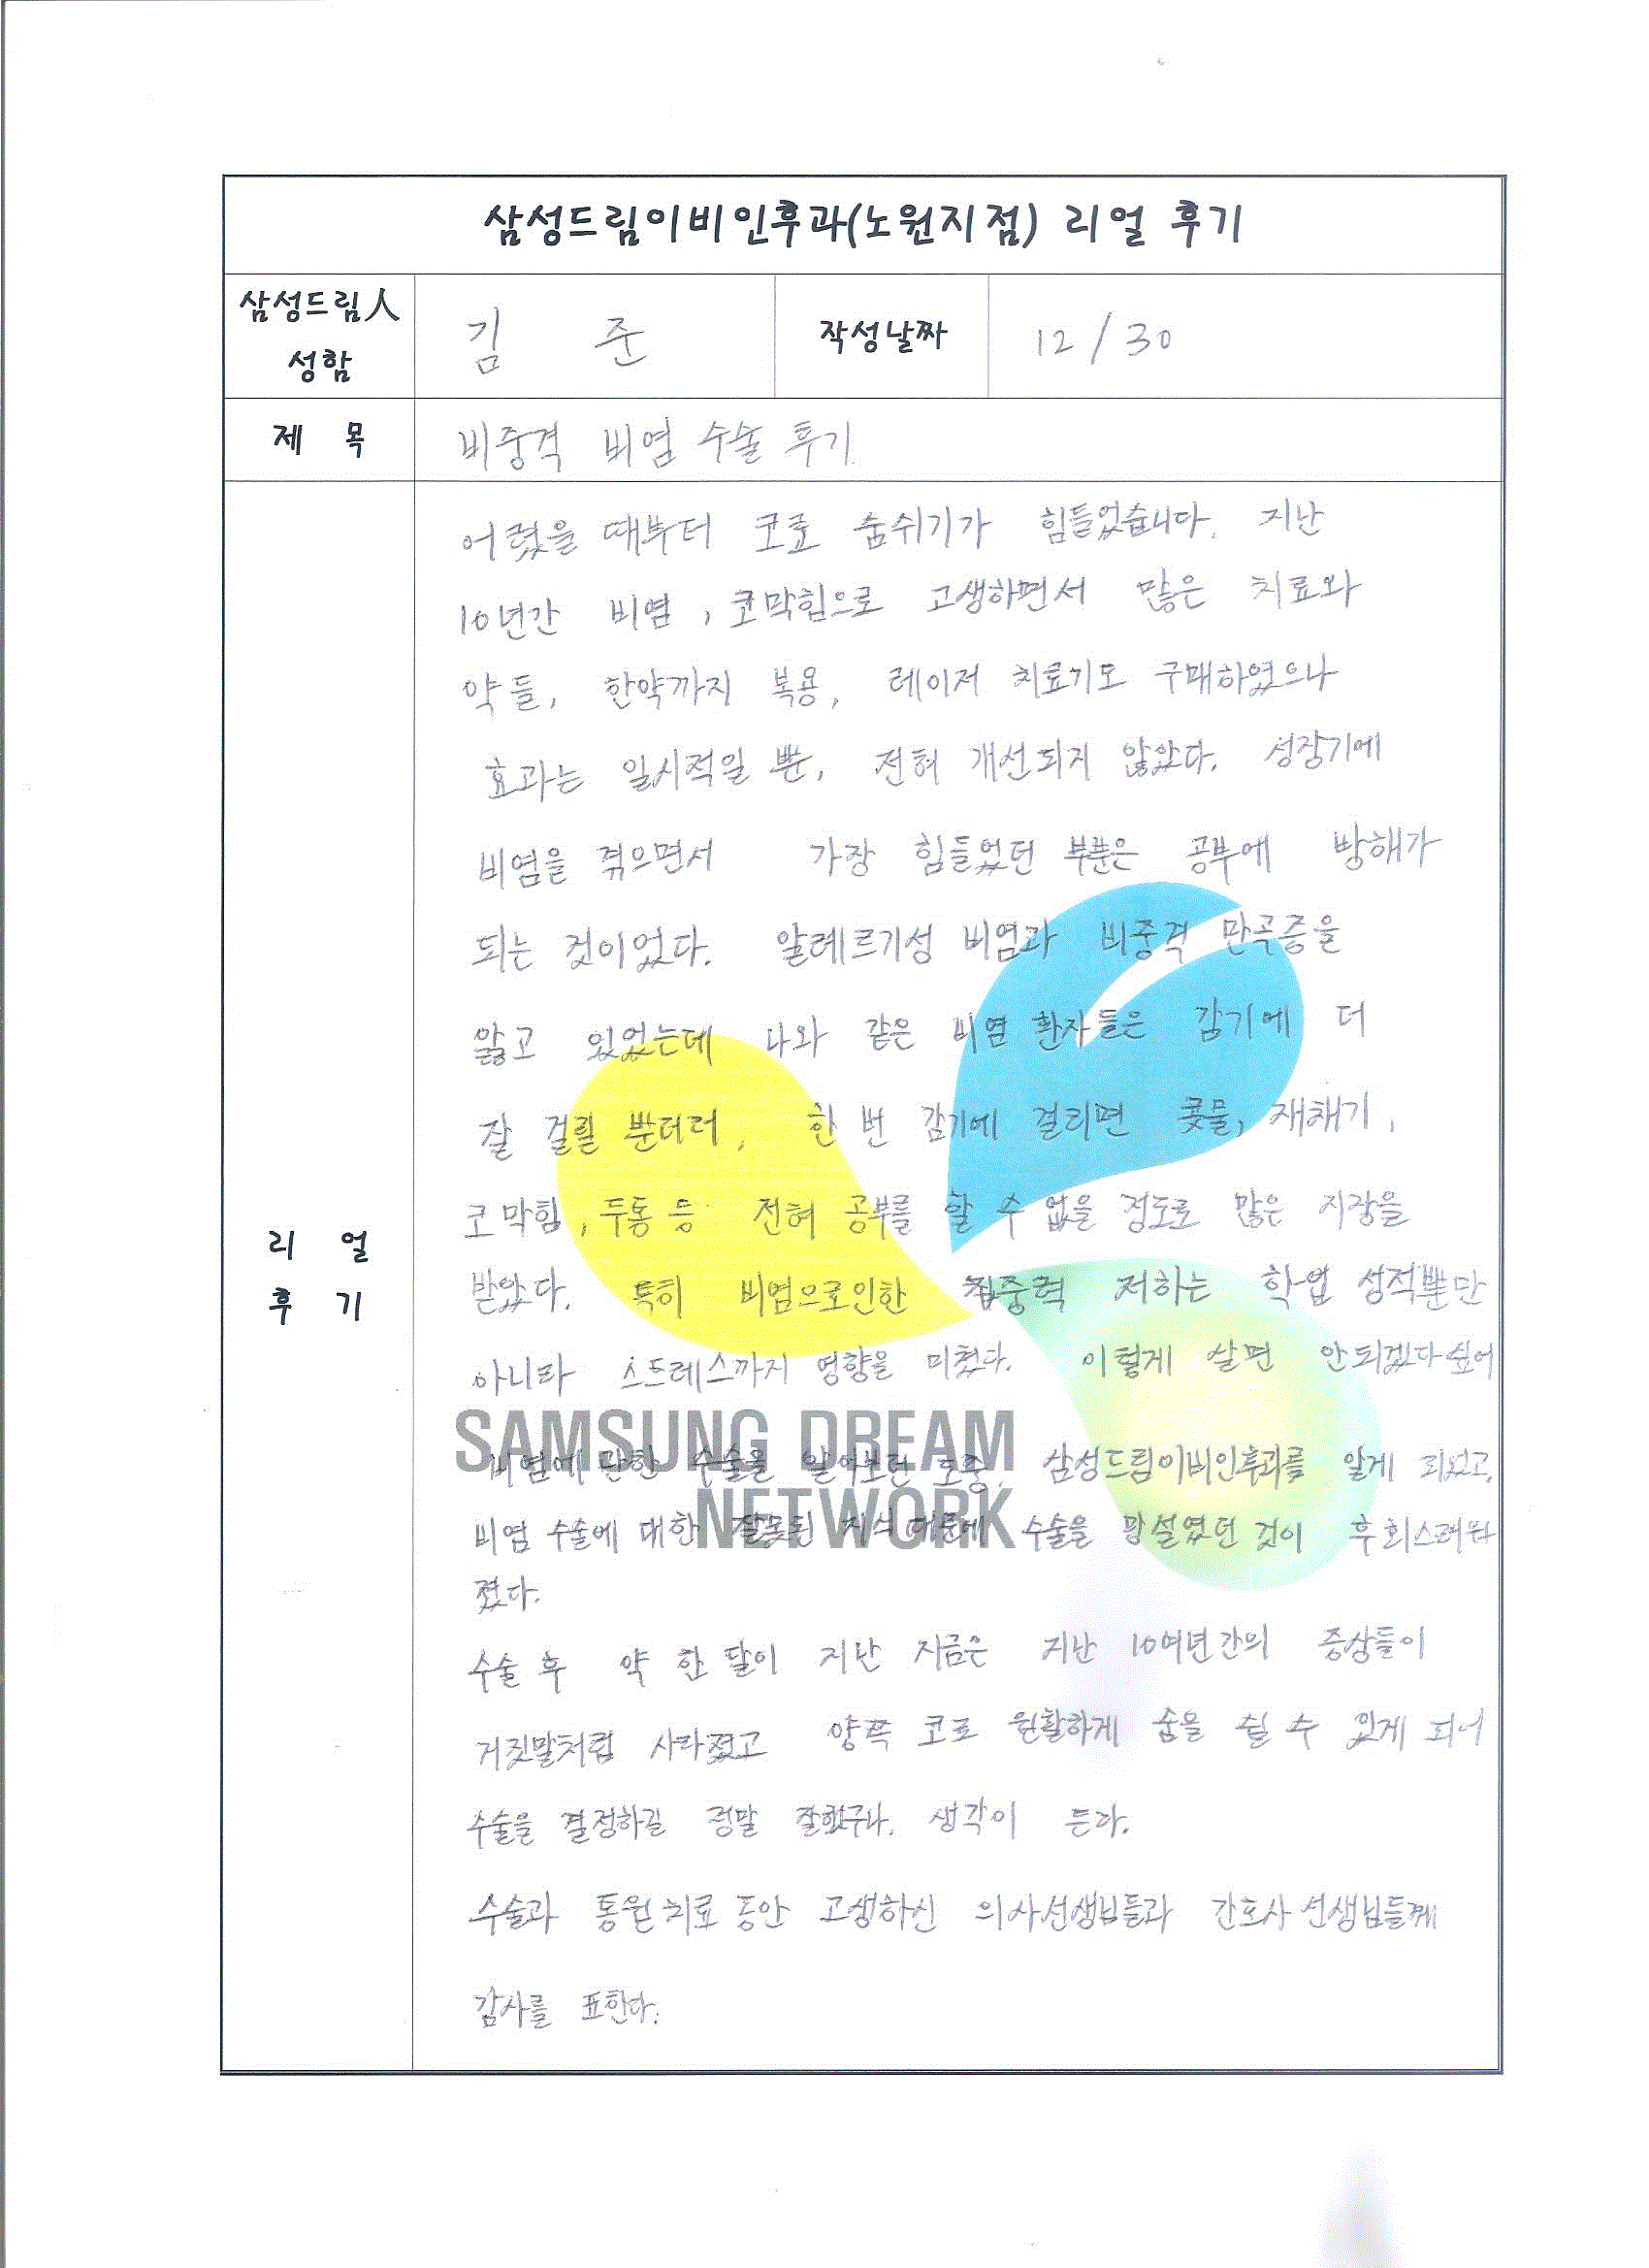 삼성드림이비인후과(노원지점) 리얼 후기
삼성드림人 성함
김 준
작성날짜
12/30
제 목
비중격 비염 수술 후기.
리 얼
후 기
어렸을 때부터 코로 숨쉬기가 힘들었습니다. 지난
10년간 비염, 코막힘으로 고생하면서 많은 치료와
약들, 한약까지 복용, 레이저 치료기도 구매하였으나
효과는 일시적일 뿐, 전혀 개선되지 않았다. 성장기에
비염을 겪으면서 가장 힘들었던 부분은 공부에 방해가
되는 것이었다. 알레르기성 비염과 비중격 만곡증을
앓고 있었는데 나와 같은 비염 환자들은 감기에 더
잘 걸릴 뿐더러, 한 번 감기에 걸리면 콧물, 재채기,
코막힘, 두통 등 전혀 공부를 할 수 없을 정도로 많은 지장을
받았다. 특히 비염으로인한 집중력 저하는 학업 성적뿐만
아니라 스트레스까지 영향을 미쳤다. 이렇게 살면 안되겠다싶어
SAMSUNG DREAM
NETWORK
비염에 관한 수술을 알아보던 도중, 삼성드림이비인후과를 알게 되었고,
비염 수술에 대한 잘못된 지식 때문에 수술을 망설였던 것이 후회스러워
졌다.
수술 후 약 한 달이 지난 지금은 지난 10여년간의 증상들이
거짓말처럼 사라졌고 양쪽 코로 원활하게 숨을 쉴 수 있게 되니
수술을 결정하길 정말 잘했구나. 생각이 든다.
수술과 통원치료 동안 고생하신 의사선생님들과 간호사 선생님들께
감사를 표한다.